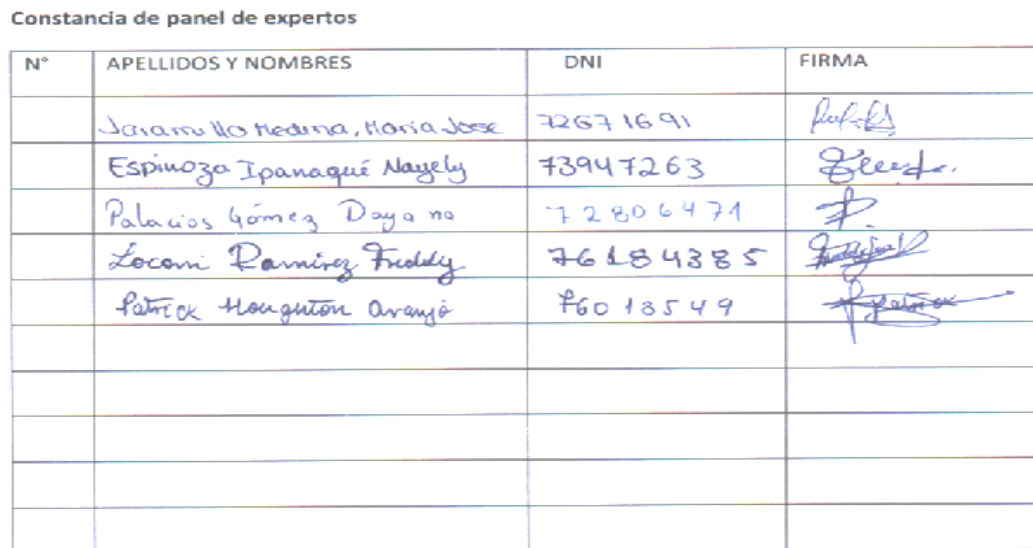 Constancia de panel de expertos
N° APELLIDOS Y NOMBRES DNI FIRMA
Jaramillo Medina, María Jose 72671691
Espinoza Ipanaqué Nayely 73947263
Palacios Gómez Dayana 72806471
Locani Ramírez Freddy 76184385
Patrick Houghton Araujo 76013549